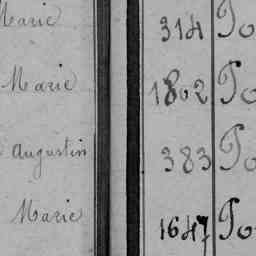 Marie 314 Po
Marie 1802 Po
Augustin 383 Po
Marie 1647 Po